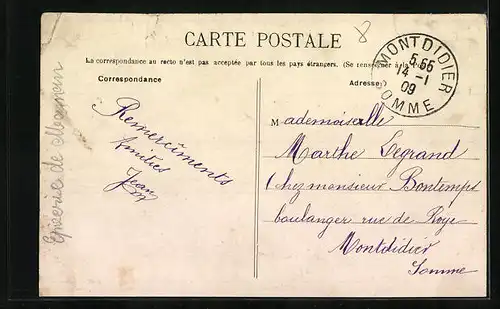 8
CARTE POSTALE
La correspondance au recto n'est pas acceptée par tous les pays étrangers. (Se renseigner à la
Correspondance
Adresse
MONTDIDIER
5.55
14 - 1
09
SOMME
Remerciments
Amitiés
Jean
Mademoiselle
Marthe Legrand
Chez monsieur Bontemps
boulanger rue de Roye
Montdidier
Somme
Epicerie de